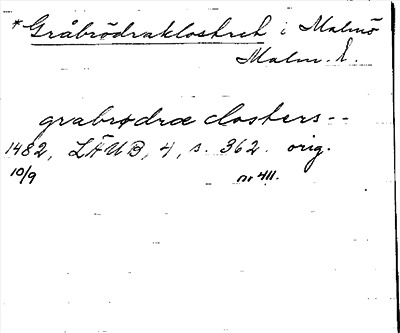 *Gråbrödraklostret i Malmö
Malm. L.
grabrødræ closters --
1482, LÄUB, 4, s. 362. orig.
10/9 nr 411.